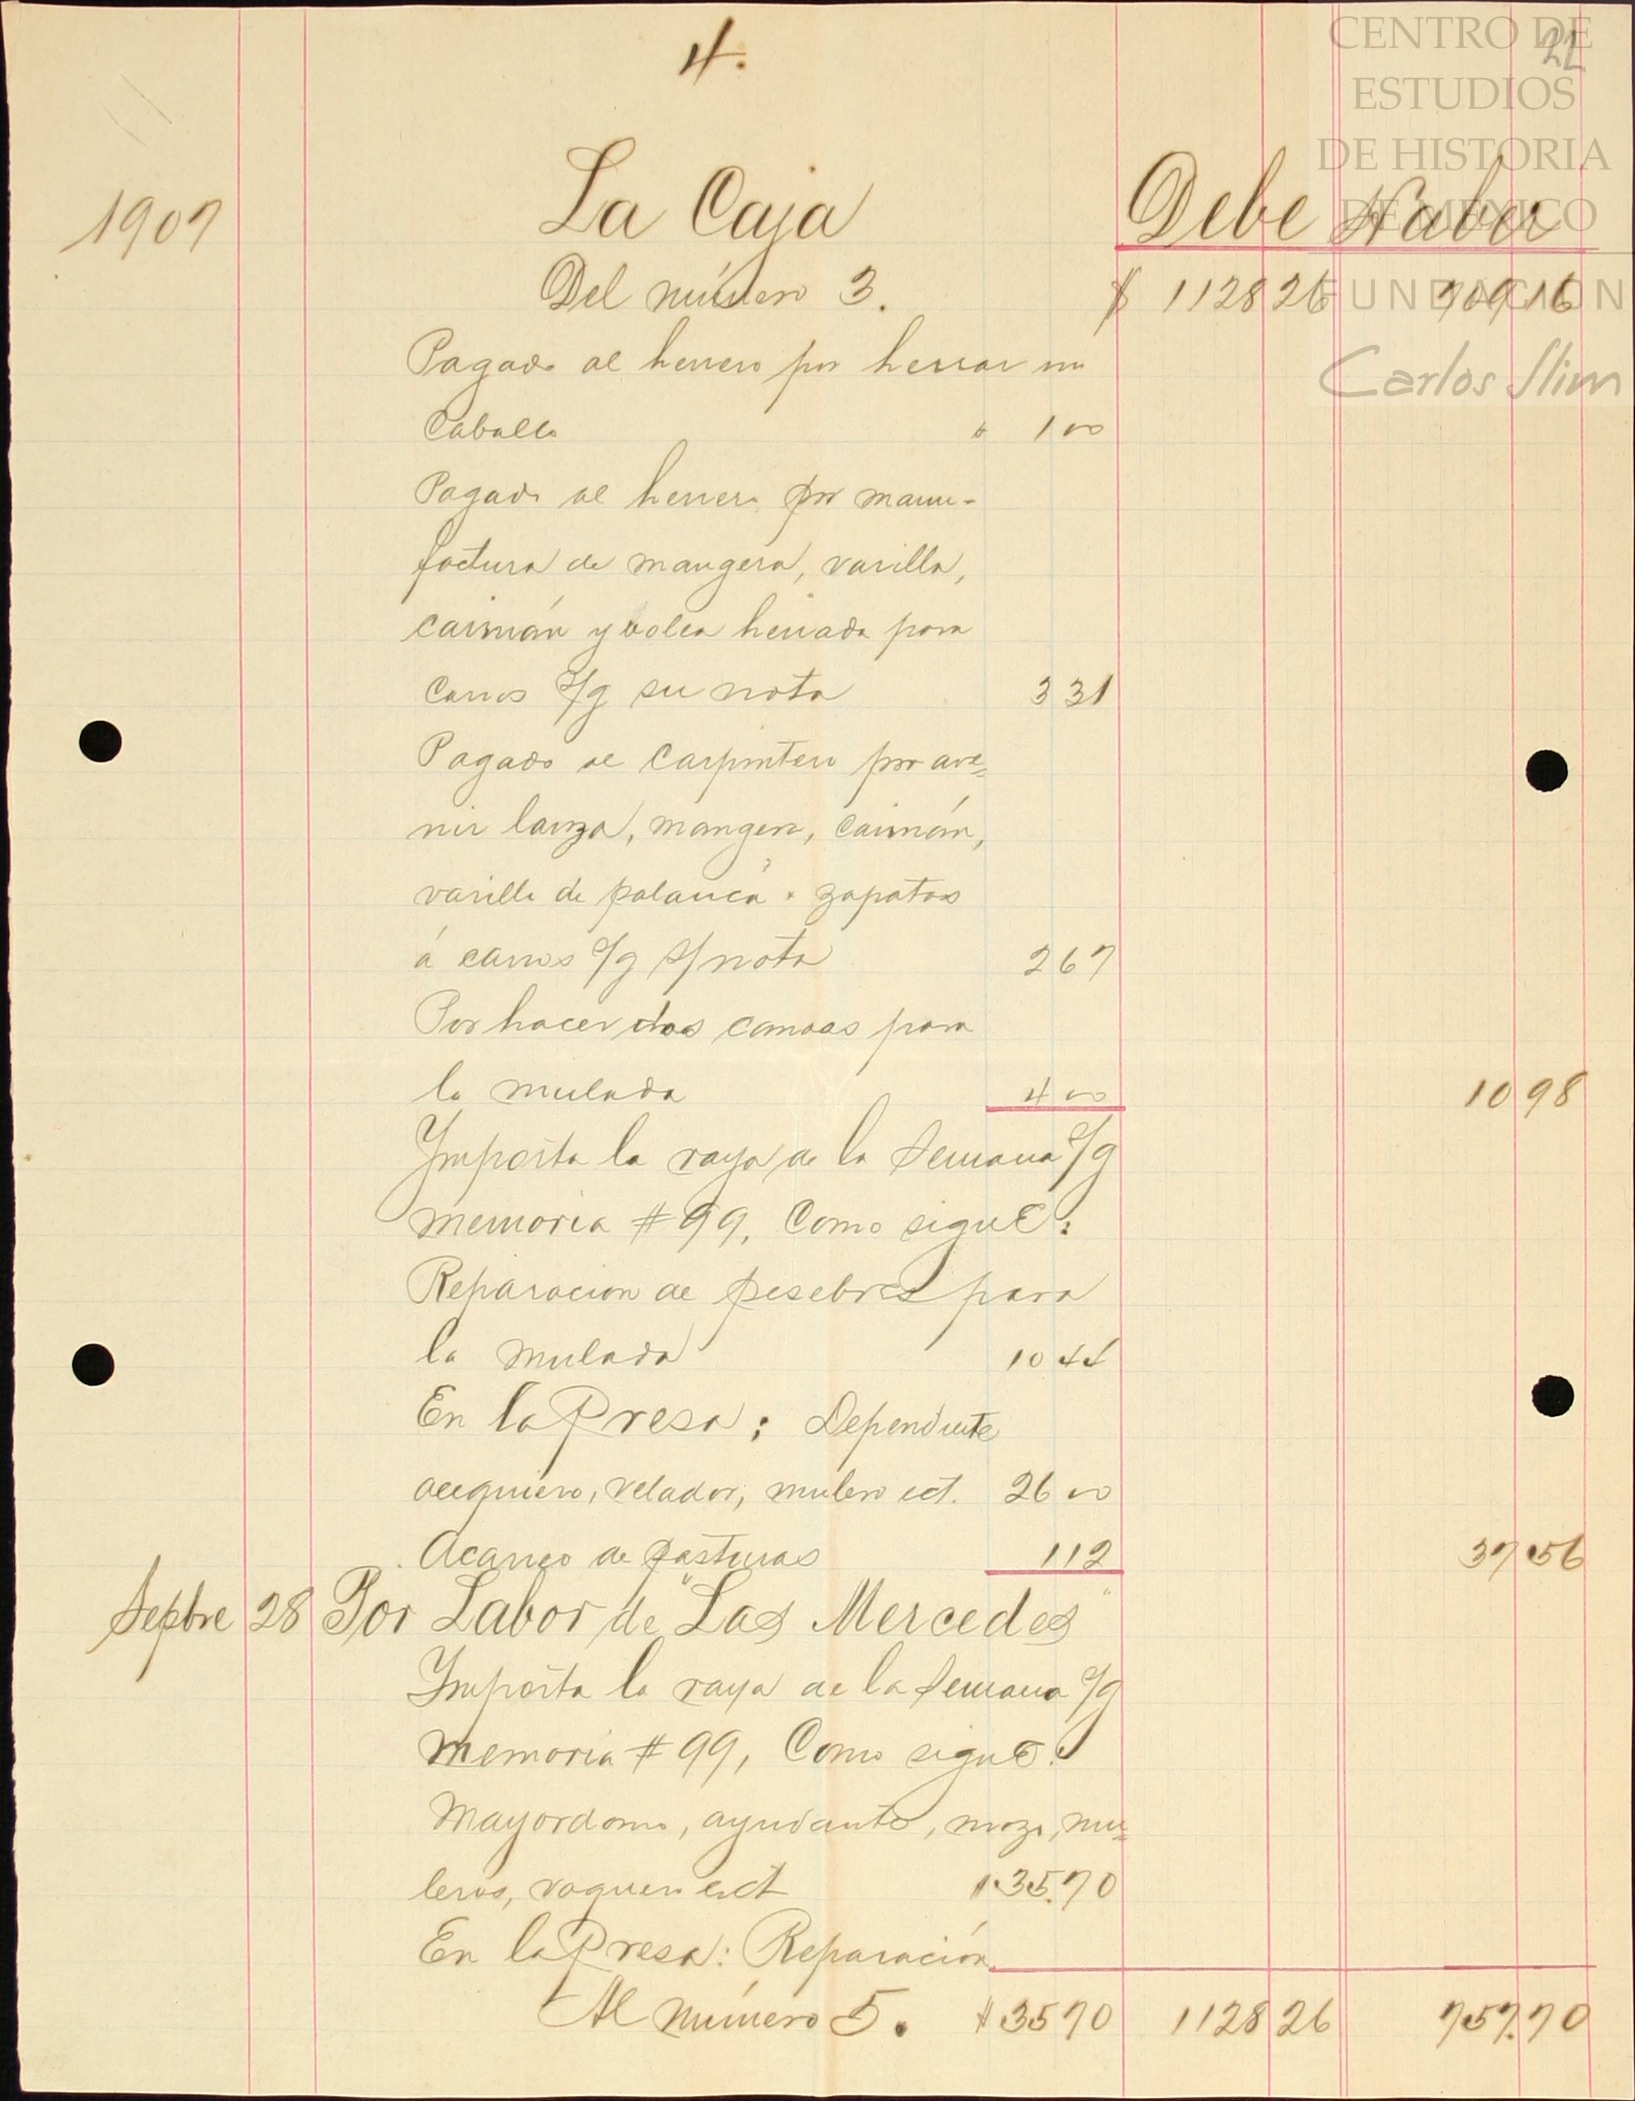 4.
22
CENTRO DE
ESTUDIOS
DE HISTORIA
DE MÉXICO
FUNDACIÓN
Carlos Slim
1907 La Caja Debe Haber
Del número 3. $ 1128 26 709 16
Pagado al herrero por herrar un
Caballo $ 1 00
Pagado al herrero por manu-
factura de mangera, varilla,
caimán y bolea herrada para
Carros s/g su nota 3 31
Pagado al Carpintero por ave=
nir lanza, mangera, Caimán,
varilla de palanca y zapatas
á carros s/g s/nota 2 67
Por hacer dos canoas para
la mulada 4 00 10 98
Importa la raya de la Semana s/g
memoria # 99, Como sigue:
Reparacion de pesebres para
la mulada 10 44
En la Presa: Dependiente
acequiero, velador, mulero ect. 26 00
Acarreo de pasturas 1 12 37 56
Sepbre 28 Por Labor de "Las Mercedes"
Importa la raya de la Semana s/g
memoria # 99, Como sigue:
Mayordomo, ayudante, mozo, mu=
leros, vaquero ect $ 35.70
En la Presa: Reparación
Al número 5. $ 35 70 1128 26 757.70